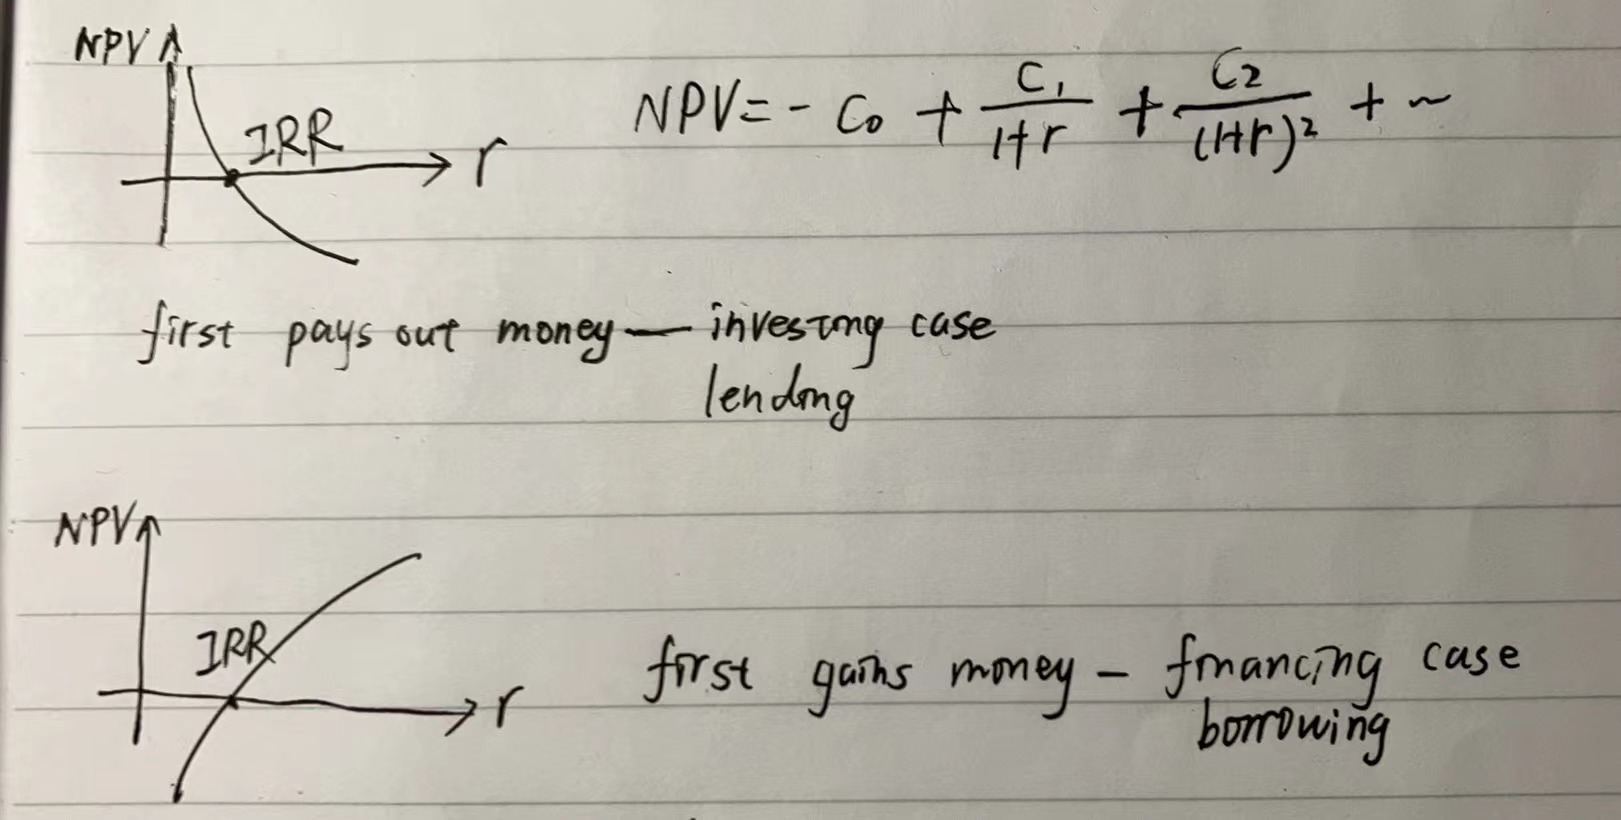 NPV
IRR
r
NPV = - C₀ + C₁/(1+r) + C₂/(1+r)² + ~
first pays out money — investing case
lending
NPV
IRR
r
first gains money – financing case
borrowing